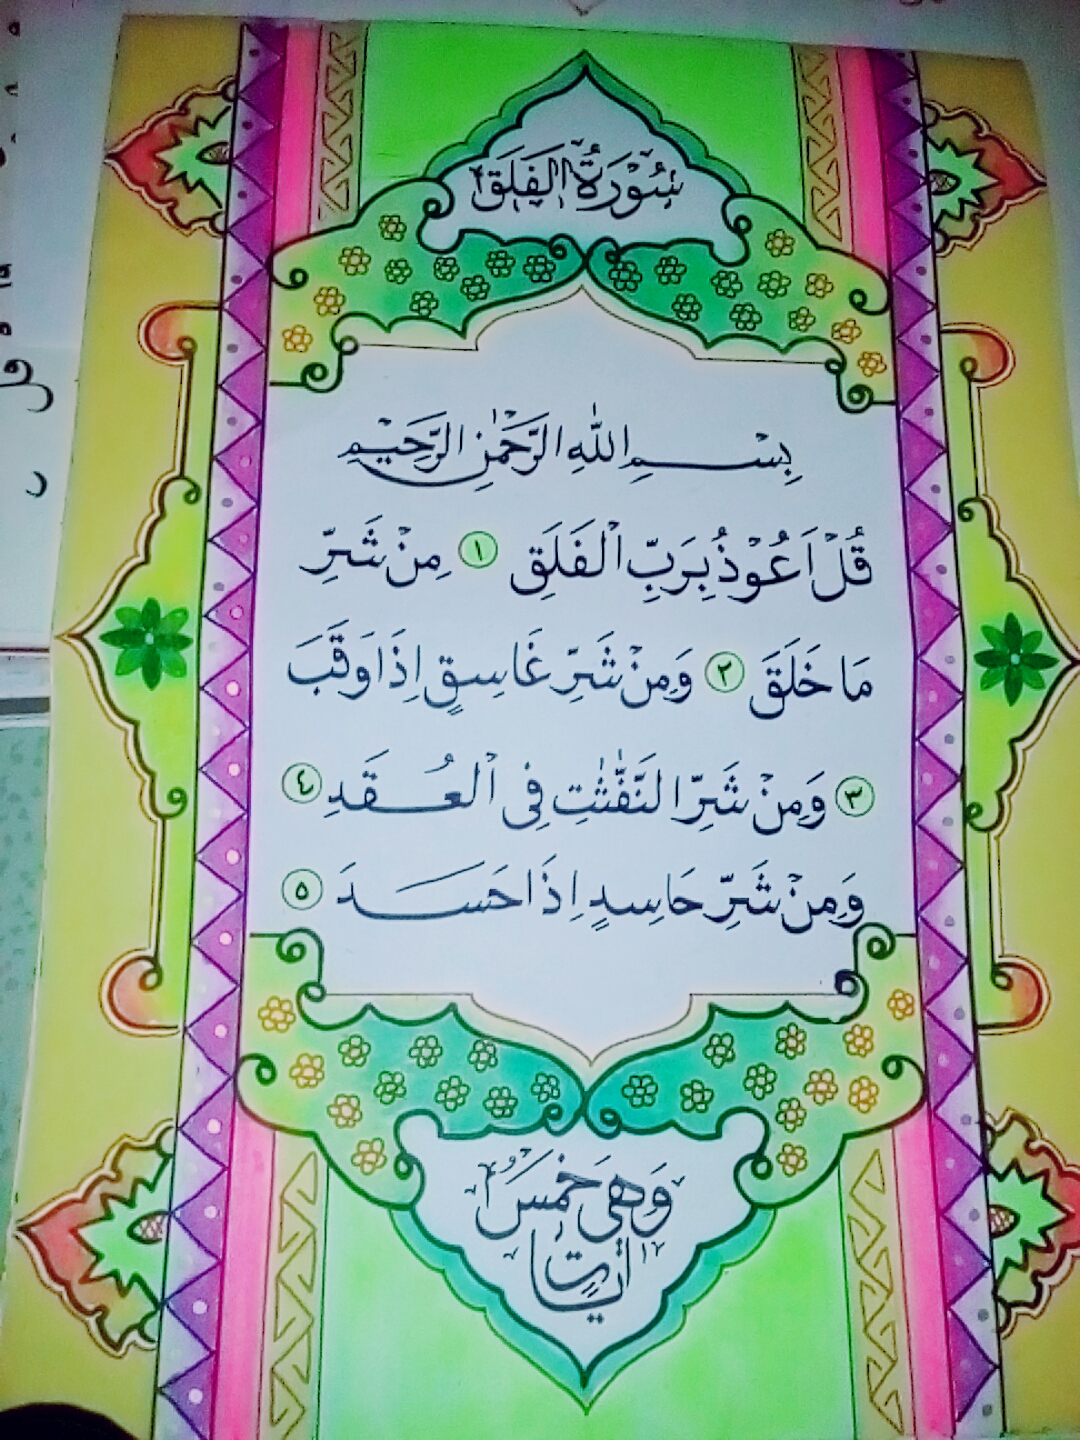 سُوْرَةُ الْفَلَقِ
بِسْمِ اللّٰهِ الرَّحْمٰنِ الرَّحِيْمِ
قُلْ اَعُوْذُ بِرَبِّ الْفَلَقِ ١ مِنْ شَرِّ
مَا خَلَقَ ٢ وَمِنْ شَرِّ غَاسِقٍ اِذَا وَقَبَ
٣ وَمِنْ شَرِّ النَّفّٰثٰتِ فِى الْعُقَدِ ٤
وَمِنْ شَرِّ حَاسِدٍ اِذَا حَسَدَ ٥
وَهِيَ خَمْسُ
اٰيَاتٍ